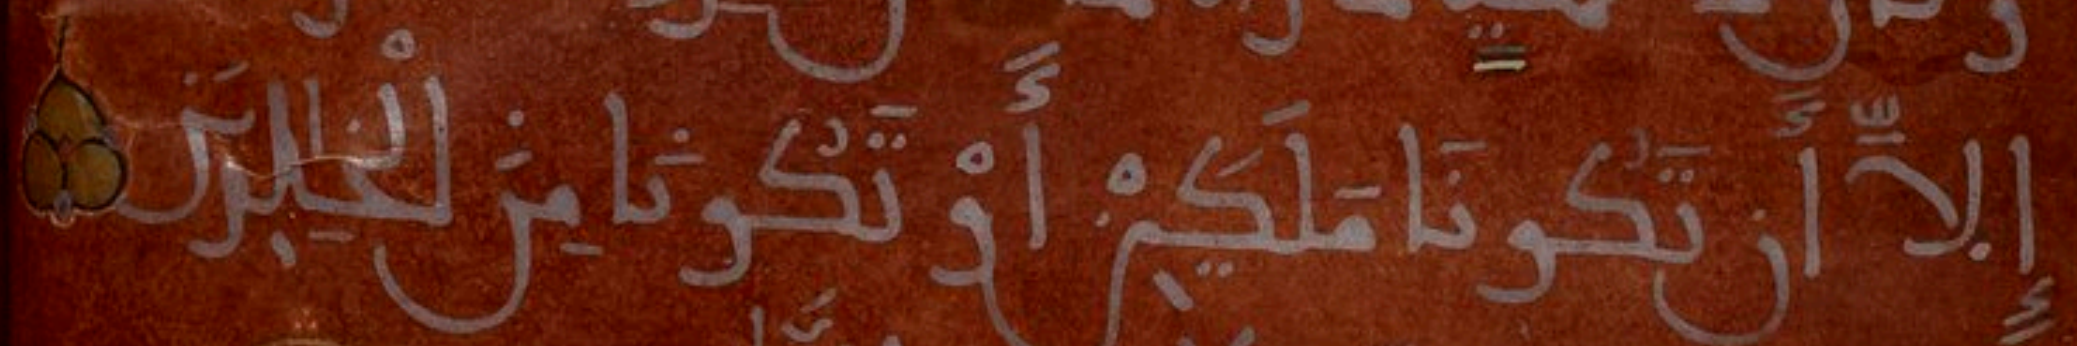 إِلَّا أَن تَكُونَا مَلَكَيْنِ أَوْ تَكُونَا مِنَ الْخَٰلِدِينَ